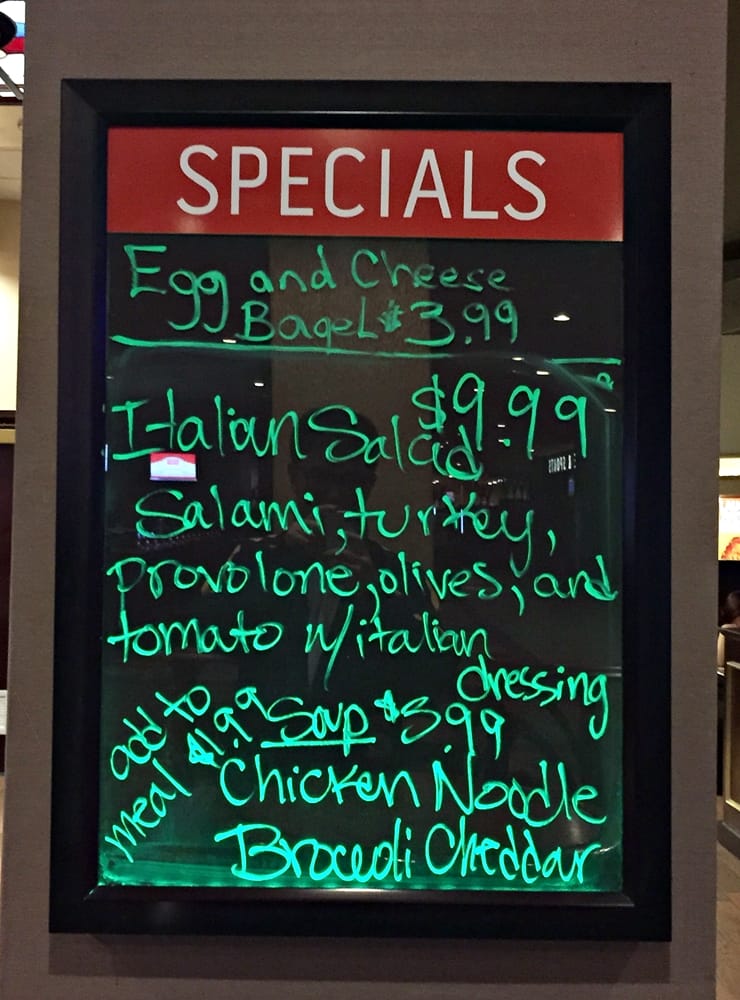 SPECIALS
Egg and Cheese
Bagel $3.99
$9.99
Italian Salad
Salami, turkey,
provolone, olives, and
tomato w/italian
dressing
add to
meal $1.99
Soup $3.99
Chicken Noodle
Broccoli Cheddar